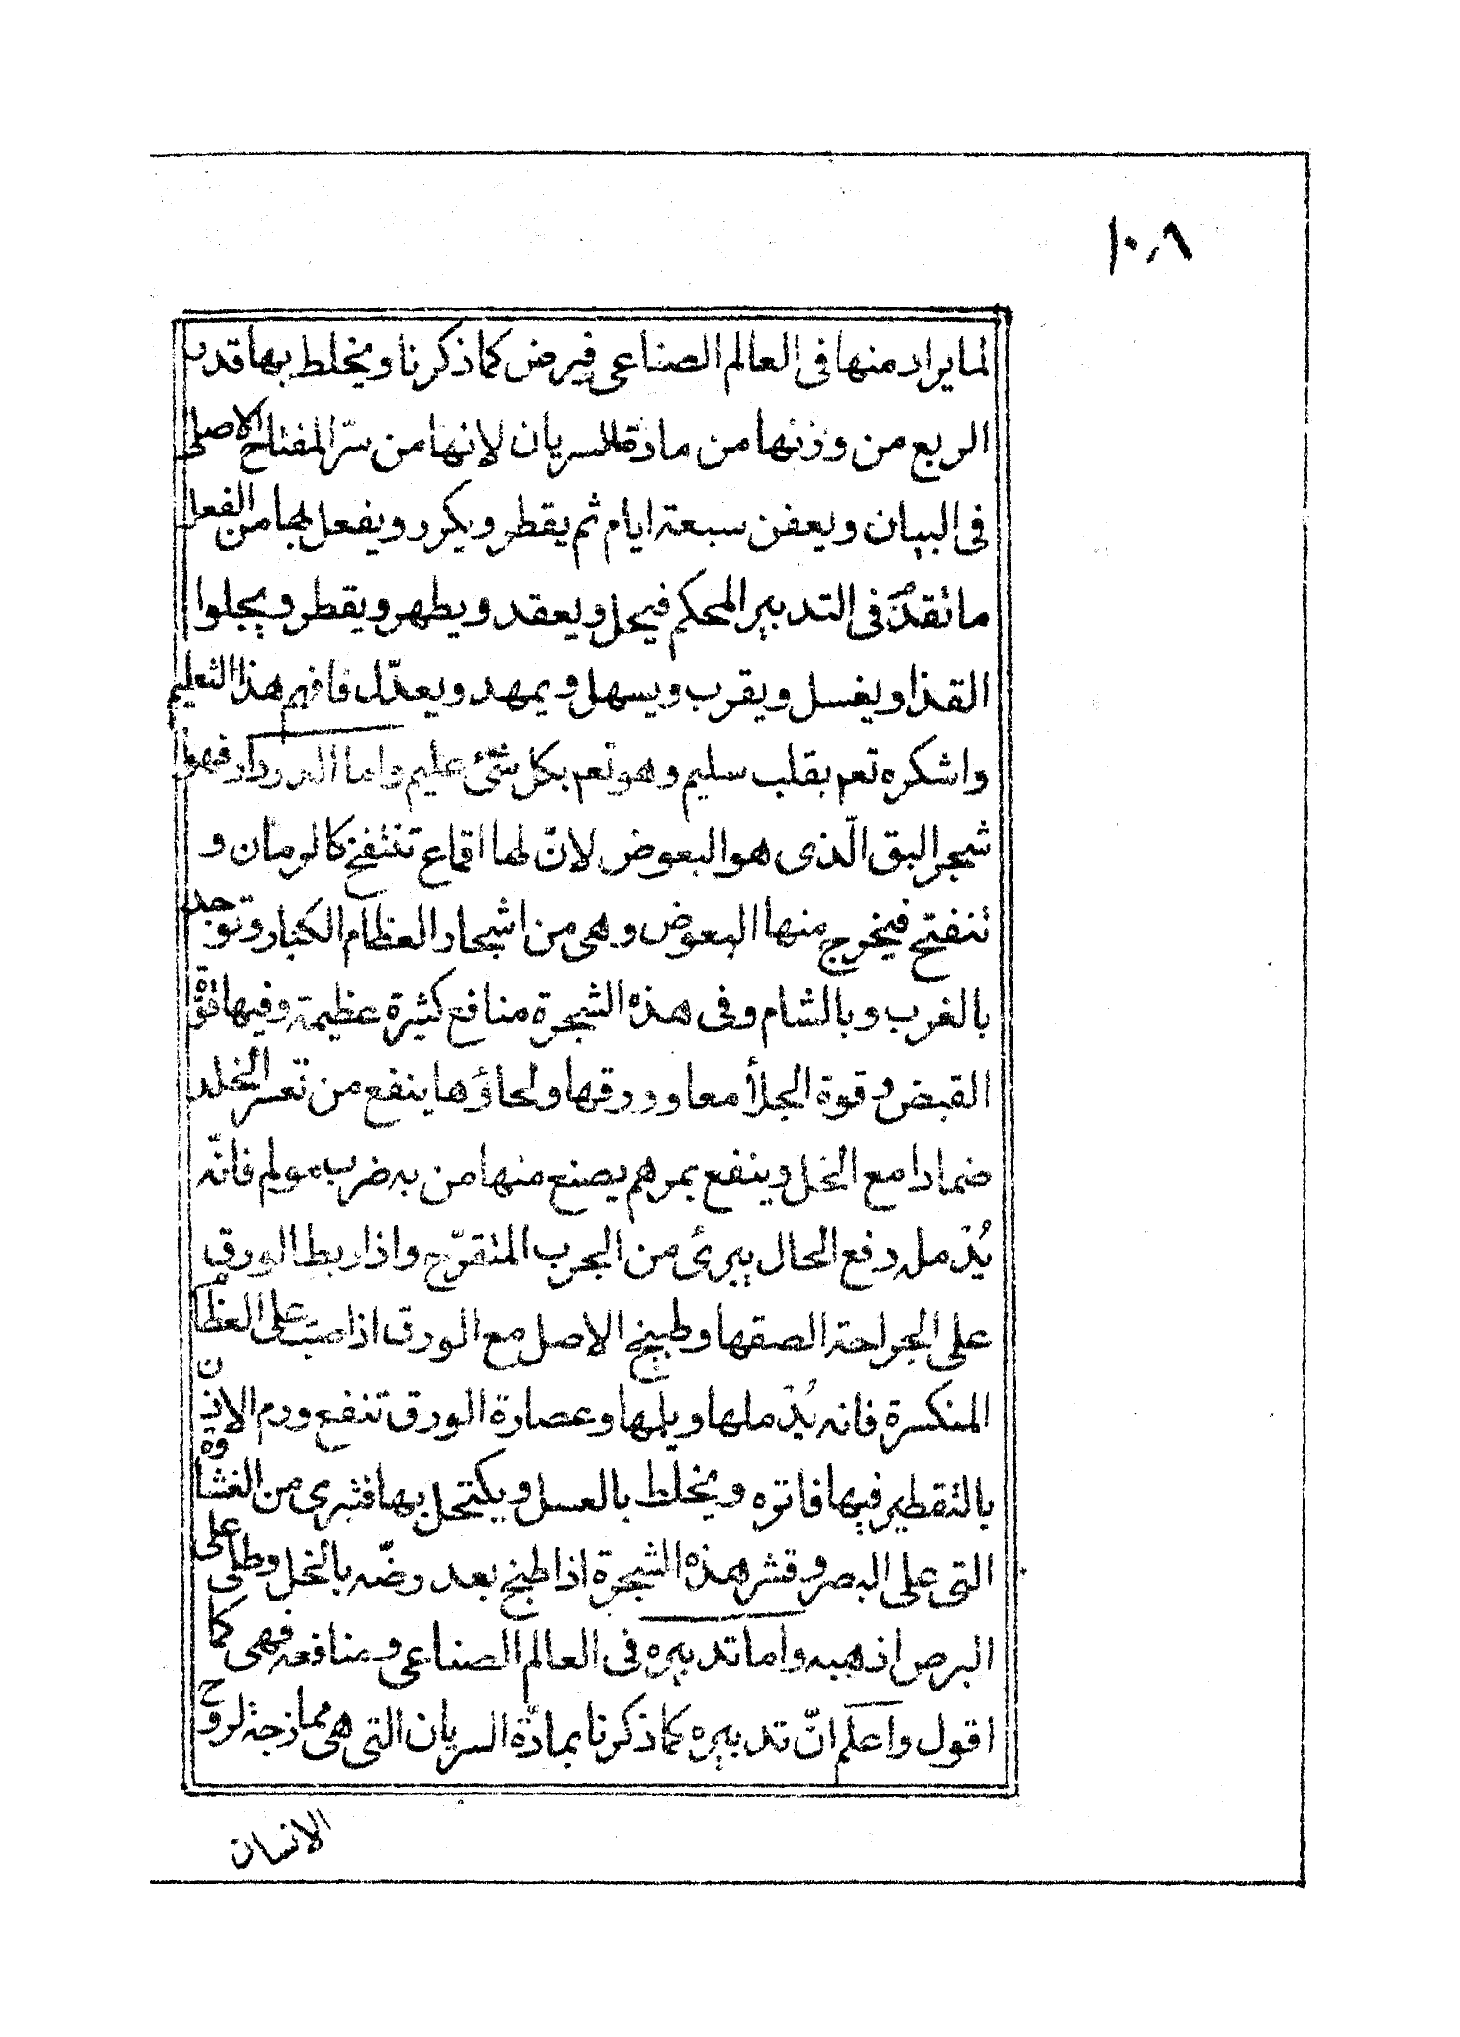 ١٠٩
لما يراد منها فى العالم الصناعى فيرض كما ذكرنا ويخلط بها قدر
الربع من وزنها من مادة السريان لانها من سرّ المفتاح الاصلى
فى البيان ويعفن سبعة ايام ثم يقطر ويكرر ويفعل لها من الفعل
ما تقدّم فى التدبير المحكم فيحل ويعقد ويطهر ويقطر ويجلوا
القذا ويغسل ويقرب ويسهل ويمهد ويعدّل فافهم هذا التعليم
واشكره تعم بقلب سليم وهو تعم بكل شئ عليم واما الدردار فهوا
شجر البق الّذى هو البعوض لانّ لها اقماع تنتفخ كالرمان و
تنفتح فيخرج منها البعوض وهى من اشجار العظام الكبار وتوجد
بالغرب وبالشام وفى هذه الشجرة منافع كثيرة عظيمة وفيها قوّة
القبض وقوة الجلأ معا وورقها ولحاؤها ينفع من تعسر الخلد
ضمادا مع الخل وينفع بمرهم يصنع منها من به ضرب مولم فانّه
يُدْمله دفع الحال يبرئ من الجرب المتقرّح واذا ربط الورق
على الجراحة الصقها وطبيخ الاصل مع الورق اذا صبّ على العظام
المنكسرة فانه يُدْملها ويلمها وعصارة الورق تنفع ورم الاذن
بالتقطير فيها فاتره ويخلط بالعسل ويكتحل بها فتبرى من الغشاوة
التى على البصر وقشر هذه الشجرة اذا طبخ بعد رضّه بالخل وطلى على
البرص اذهبه واما تدبيره فى العالم الصناعى ومنافعه فهى كما
اقول واعلم انّ تدبيره كما ذكرنا بمادّة السريان التى هى ممازجة لروح
الانسان